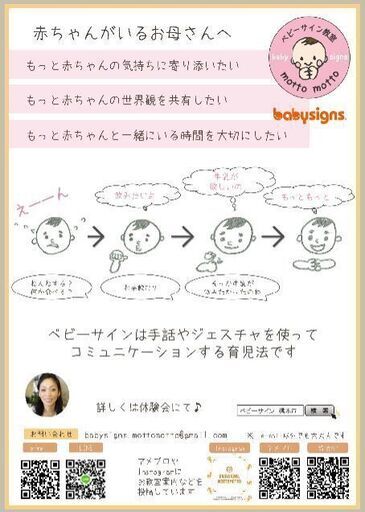 赤ちゃんがいるお母さんへ
もっと赤ちゃんの気持ちに寄り添いたい
もっと赤ちゃんの世界観を共有したい
もっと赤ちゃんと一緒にいる時間を大切にしたい
ベビーサイン教室
baby signs
motto motto
babysigns.
えーーん
飲みたいよ
牛乳が
欲しいの
もっともっと
ベビーサインは手話やジェスチャを使って
コミュニケーションする育児法です
詳しくは体験会にて♪
検索
お問い合わせ
アメブロや
Instagramに
お教室案内などを
投稿しています
LINE
Instagram
アメブロ